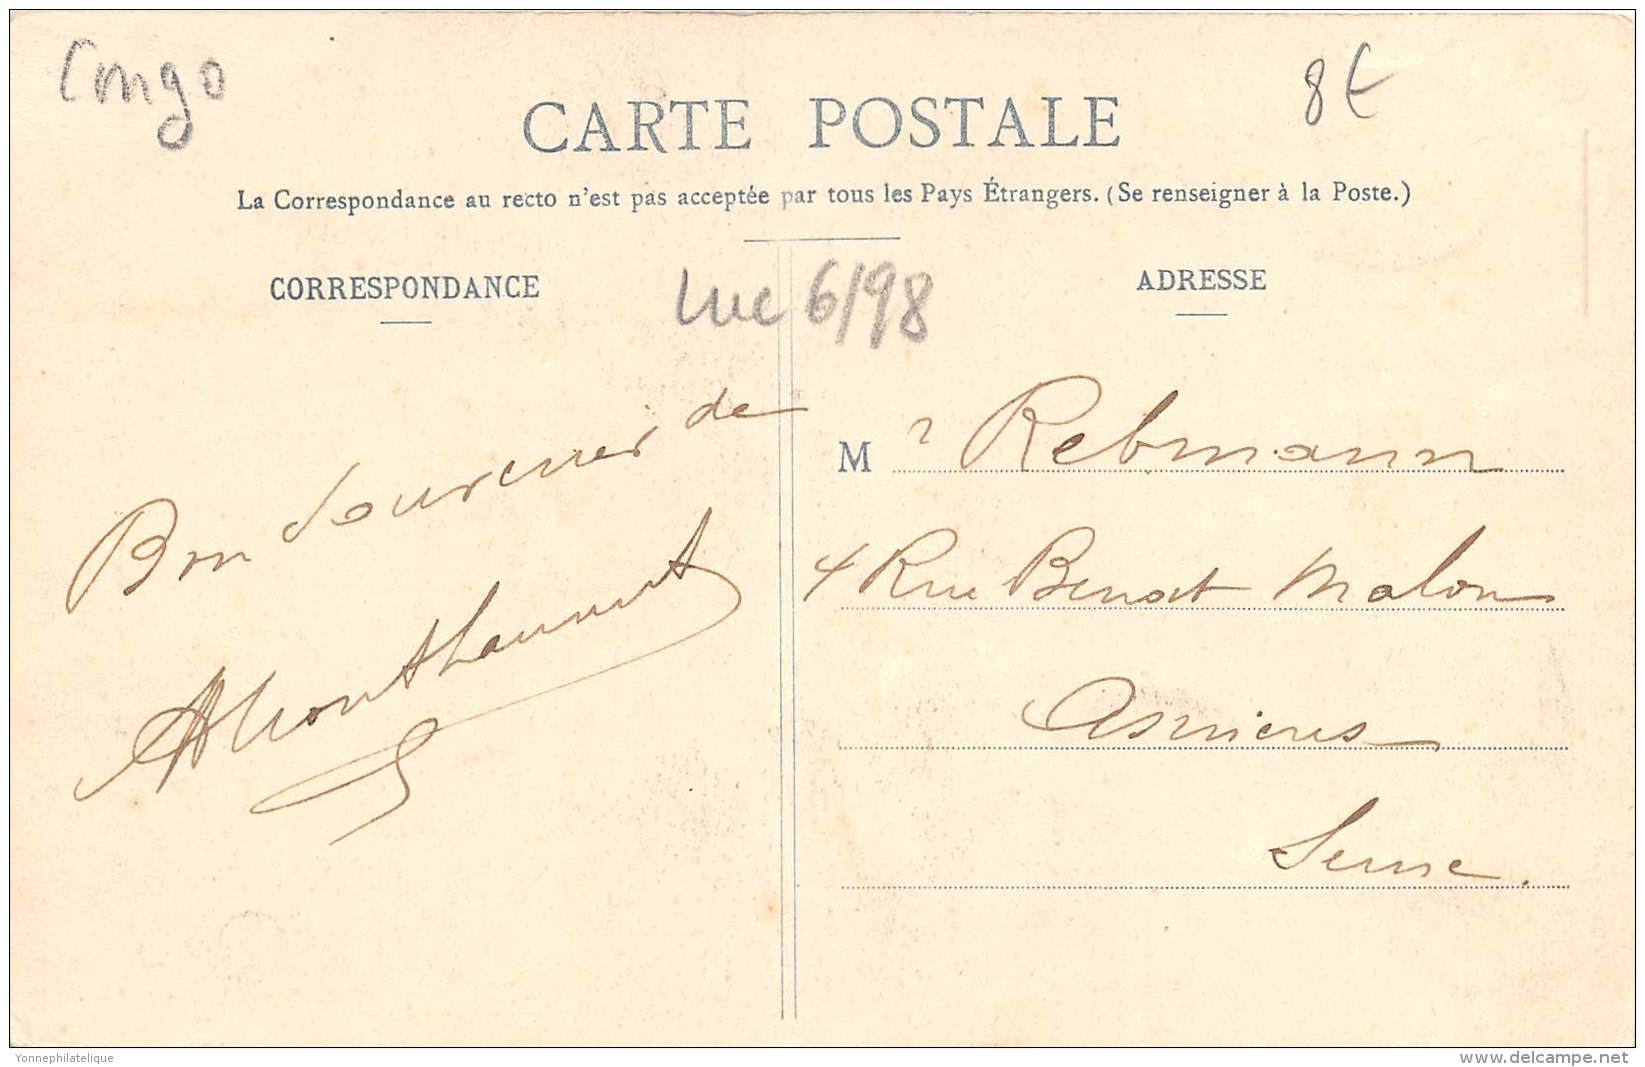 Congo
8€
CARTE POSTALE
La Correspondance au recto n'est pas acceptée par tous les Pays Étrangers. (Se renseigner à la Poste.)
CORRESPONDANCE
Luc 6/98
ADRESSE
Bon Souvenir de
M r Rebmann
4 Rue Benoit Malon
Asnieres
Seine.
Yonnephilatelique
delcampe.net